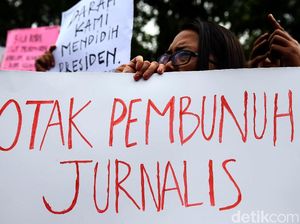 DARAH
KAMI
MENDIDIH
PRESIDEN.
OTAK PEMBUNUH
JURNALIS
detikcom